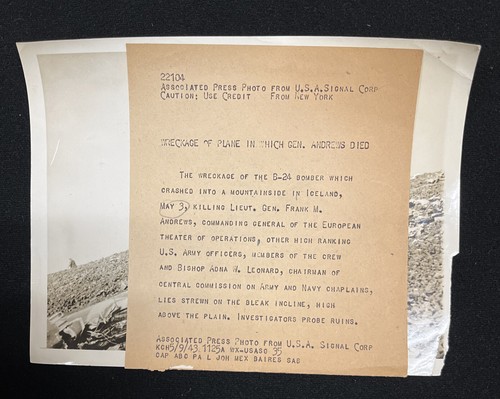 22104
Associated Press Photo from U.S.A. Signal Corp
Caution: Use Credit From New York
WRECKAGE OF PLANE IN WHICH GEN. ANDREWS DIED
The wreckage of the B-24 bomber which
crashed into a mountainside in Iceland,
May 3, killing Lieut. Gen. Frank M.
Andrews, commanding general of the European
theater of operations, other high ranking
U.S. Army officers, members of the crew
and Bishop Adna W. Leonard, chairman of
central commission on Army and Navy chaplains,
lies strewn on the bleak incline, high
above the plain. Investigators probe ruins.
Associated Press Photo from U.S.A. Signal Corp
KGH5/9/43.1125A WX-USASG 35
CAP ABC PA L JOH MEX BAIRES SAG